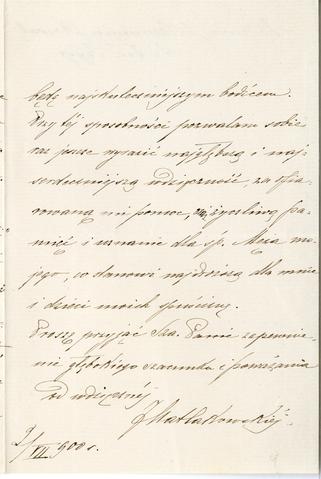 będę najskuteczniejszym bodźcem.
Przy tej sposobności pozwalam sobie
raz jeszcze wyrazić najgłębszą i naj-
serdeczniejszą wdzięczność, za ofia-
rowaną mi pomoc, życzliwą pa-
mięć i uznanie dla śp. Męża mo-
jego, co stanowi najdroższą dla mnie
i dzieci moich spuściznę.
Proszę przyjąć Sza. Panie zapewnie-
nie głębokiego szacunku i poważania
od wdzięcznej
J Matlakowskiéj
9/VII 900 r.